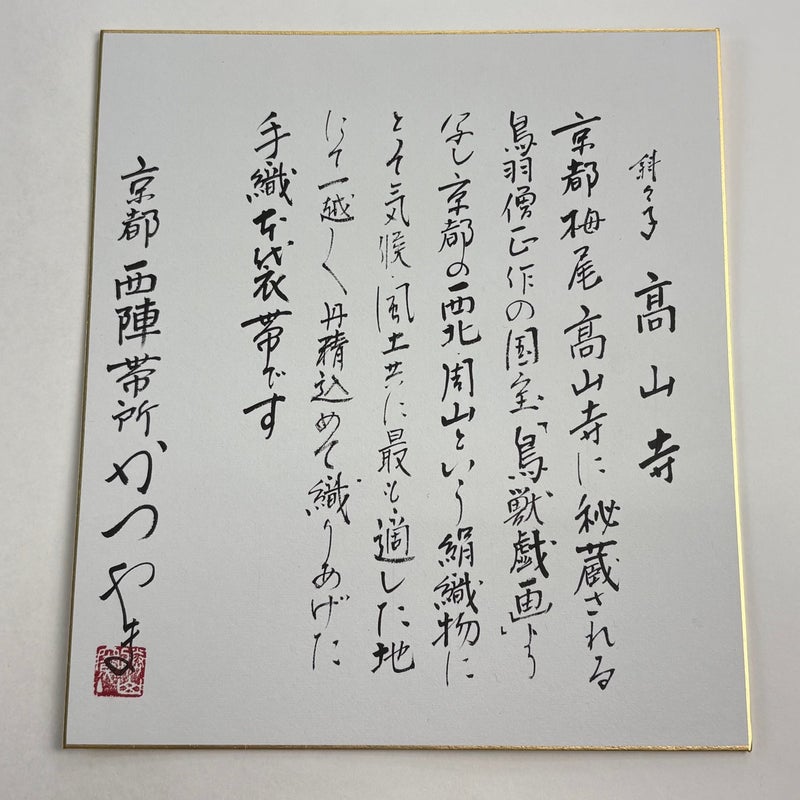 斜々子 高山寺
京都栂尾高山寺に秘蔵される
鳥羽僧正作の国宝「鳥獣戯画」より
写し京都の西北・周山という絹織物に
とて気候・風土共に最も適した地
にて一越〱丹精込めて織りあげた
手織本袋帯です
京都 西陣帯所 かつやま